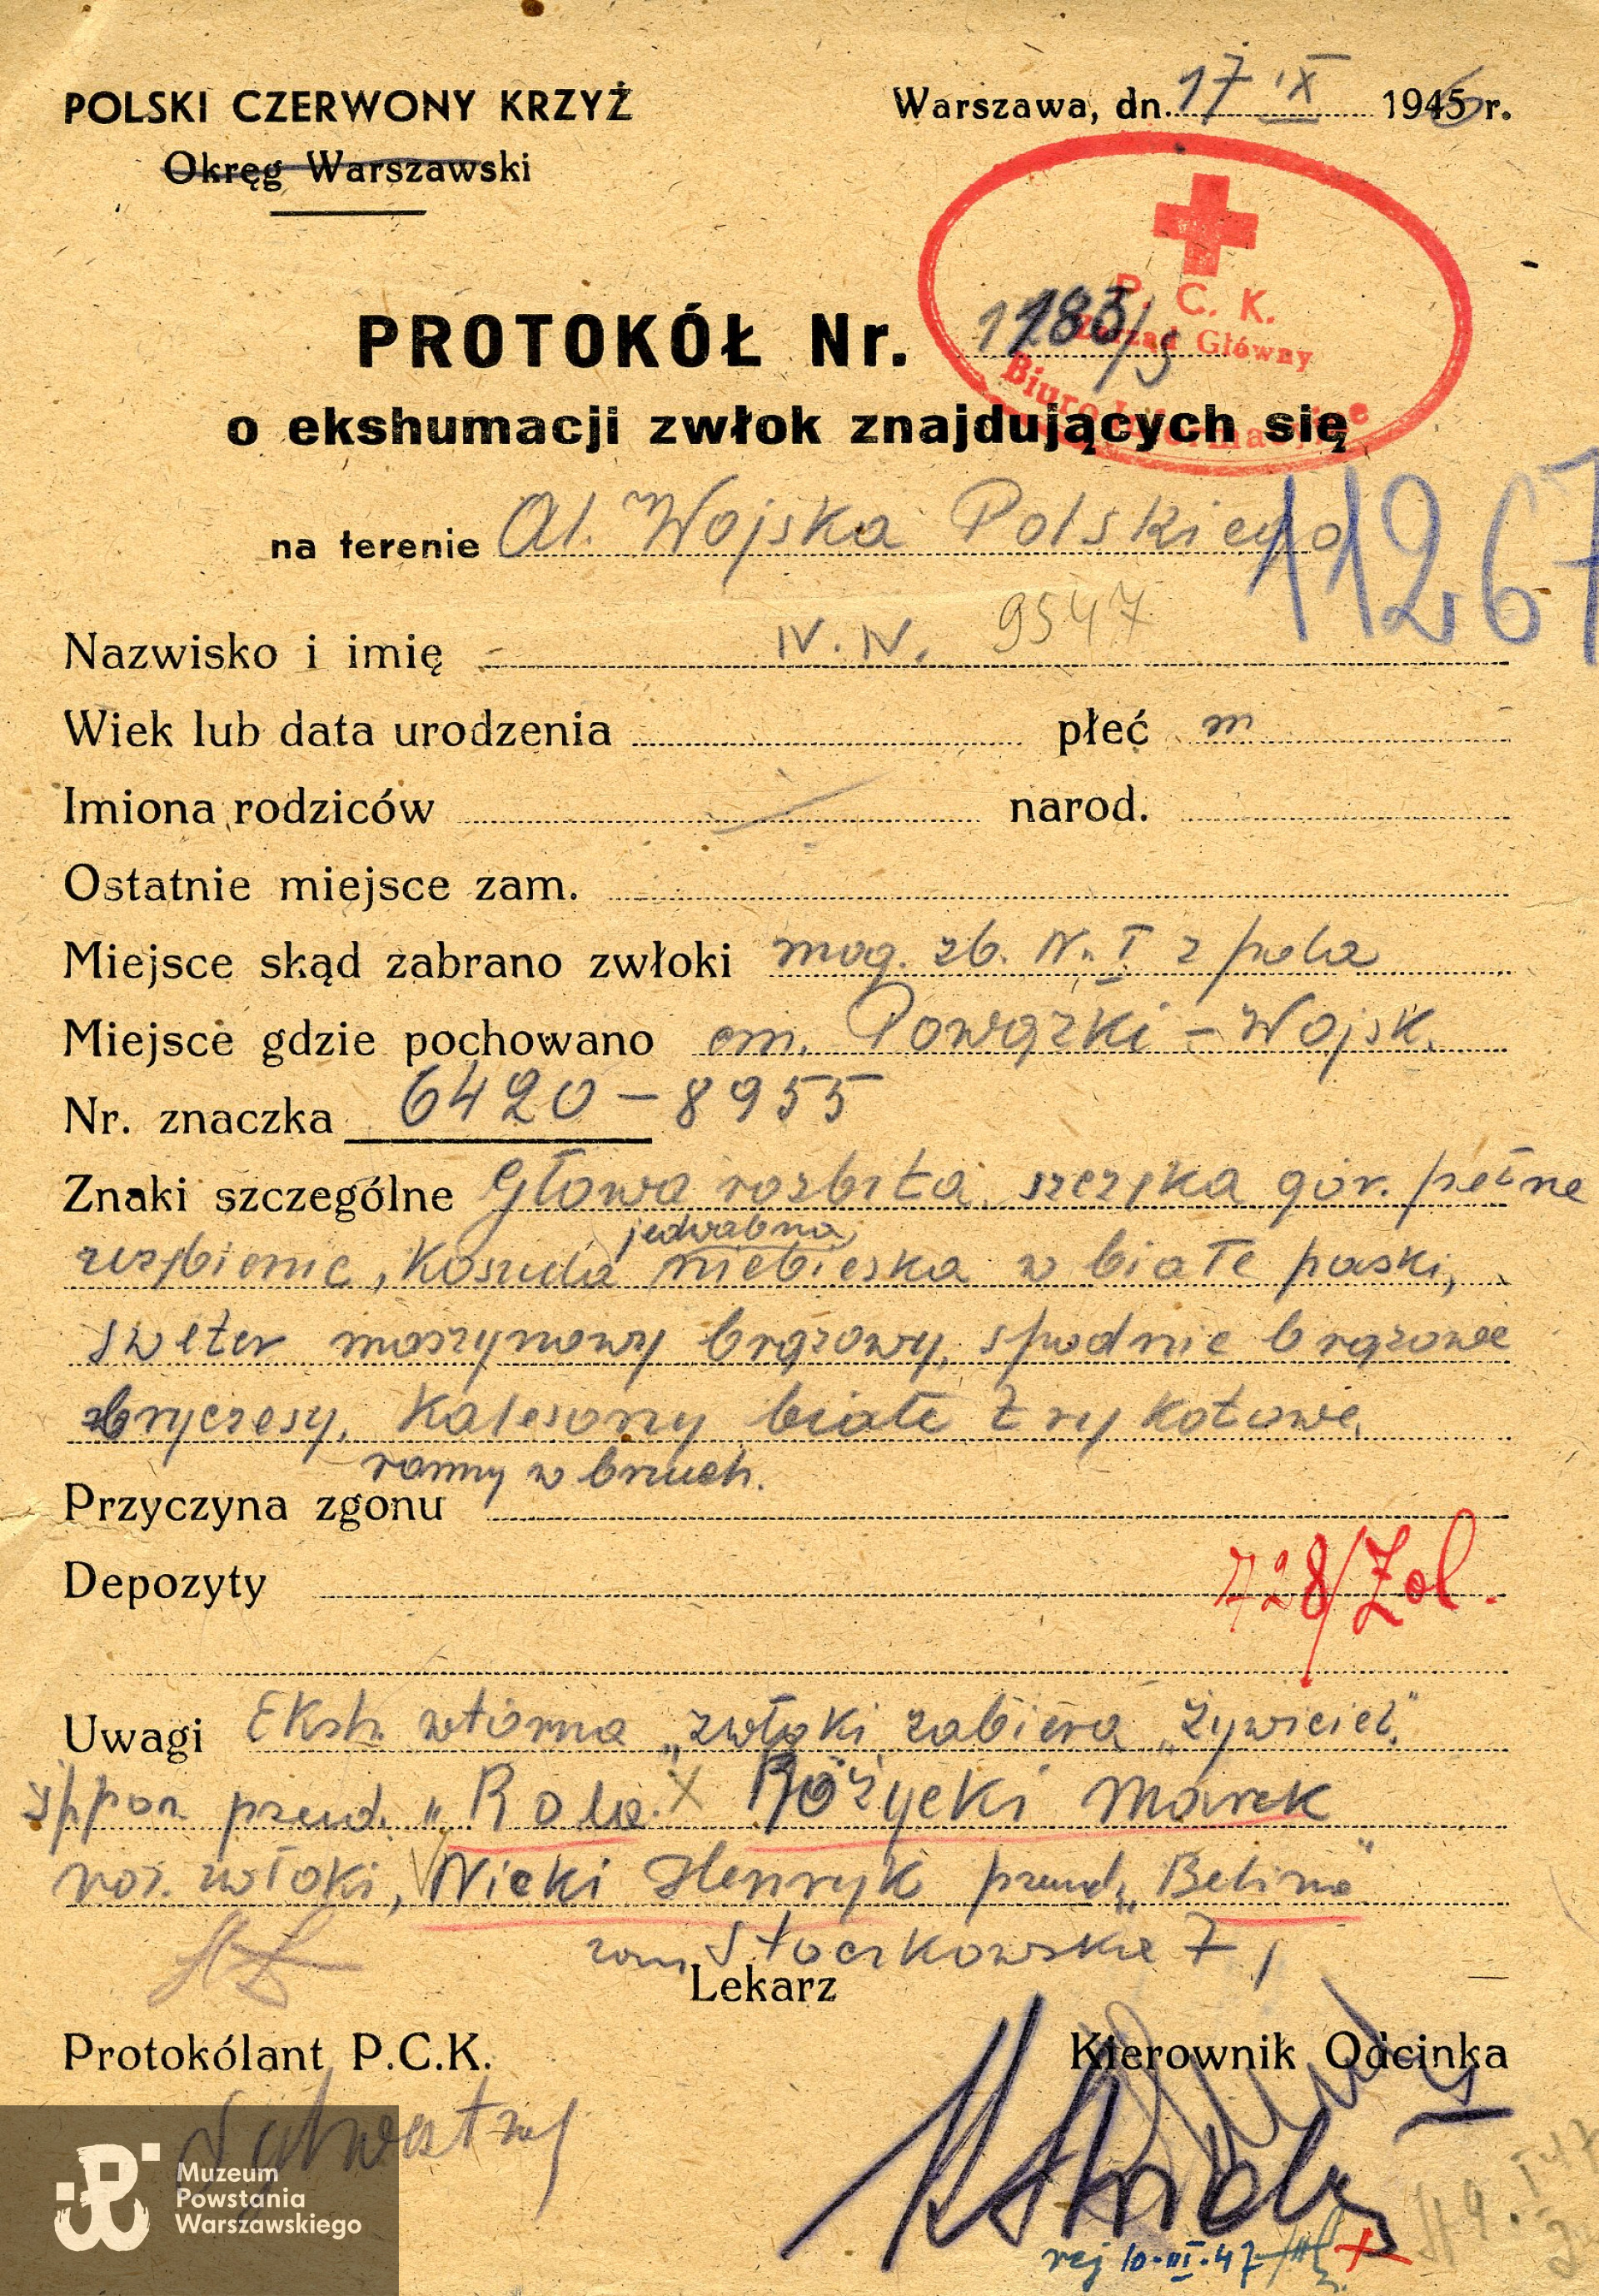 POLSKI CZERWONY KRZYŻ
Okręg Warszawski
Warszawa, dn. 17 IX 1946 r.
P. C. K.
Zarząd Główny
Biuro Informacyjne
PROTOKÓŁ Nr. 1183/S
o ekshumacji zwłok znajdujących się
na terenie Al. Wojska Polskiego
11267
Nazwisko i imię N. N. 9547
Wiek lub data urodzenia płeć m
Imiona rodziców narod.
Ostatnie miejsce zam.
Miejsce skąd zabrano zwłoki mog. zb. N. I z pola
Miejsce gdzie pochowano cm. Powązki - Wojsk.
Nr. znaczka 6420 - 8955
Znaki szczególne Głowa rozbita, szczęka gór. pełne
uzębienie, Koszula jedwabna niebieska w białe paski,
sweter maszynowy brązowy, spodnie brązowe
bryczesy, Kalesony białe trykotowe,
ranny w brzuch.
Przyczyna zgonu
Depozyty
728/Żol.
Uwagi Eksh. wtórna „zwłoki zabiera „Żywiciel"
ppor. pseud. „Rola. x Różycki Marek
roz. zwłoki, Nicki Henryk pseud. „Belina"
zam. Słoczkowskie 7,
Lekarz
Protokólant P.C.K.
Kierownik Odcinka
rej 10.III.47
Muzeum
Powstania
Warszawskiego